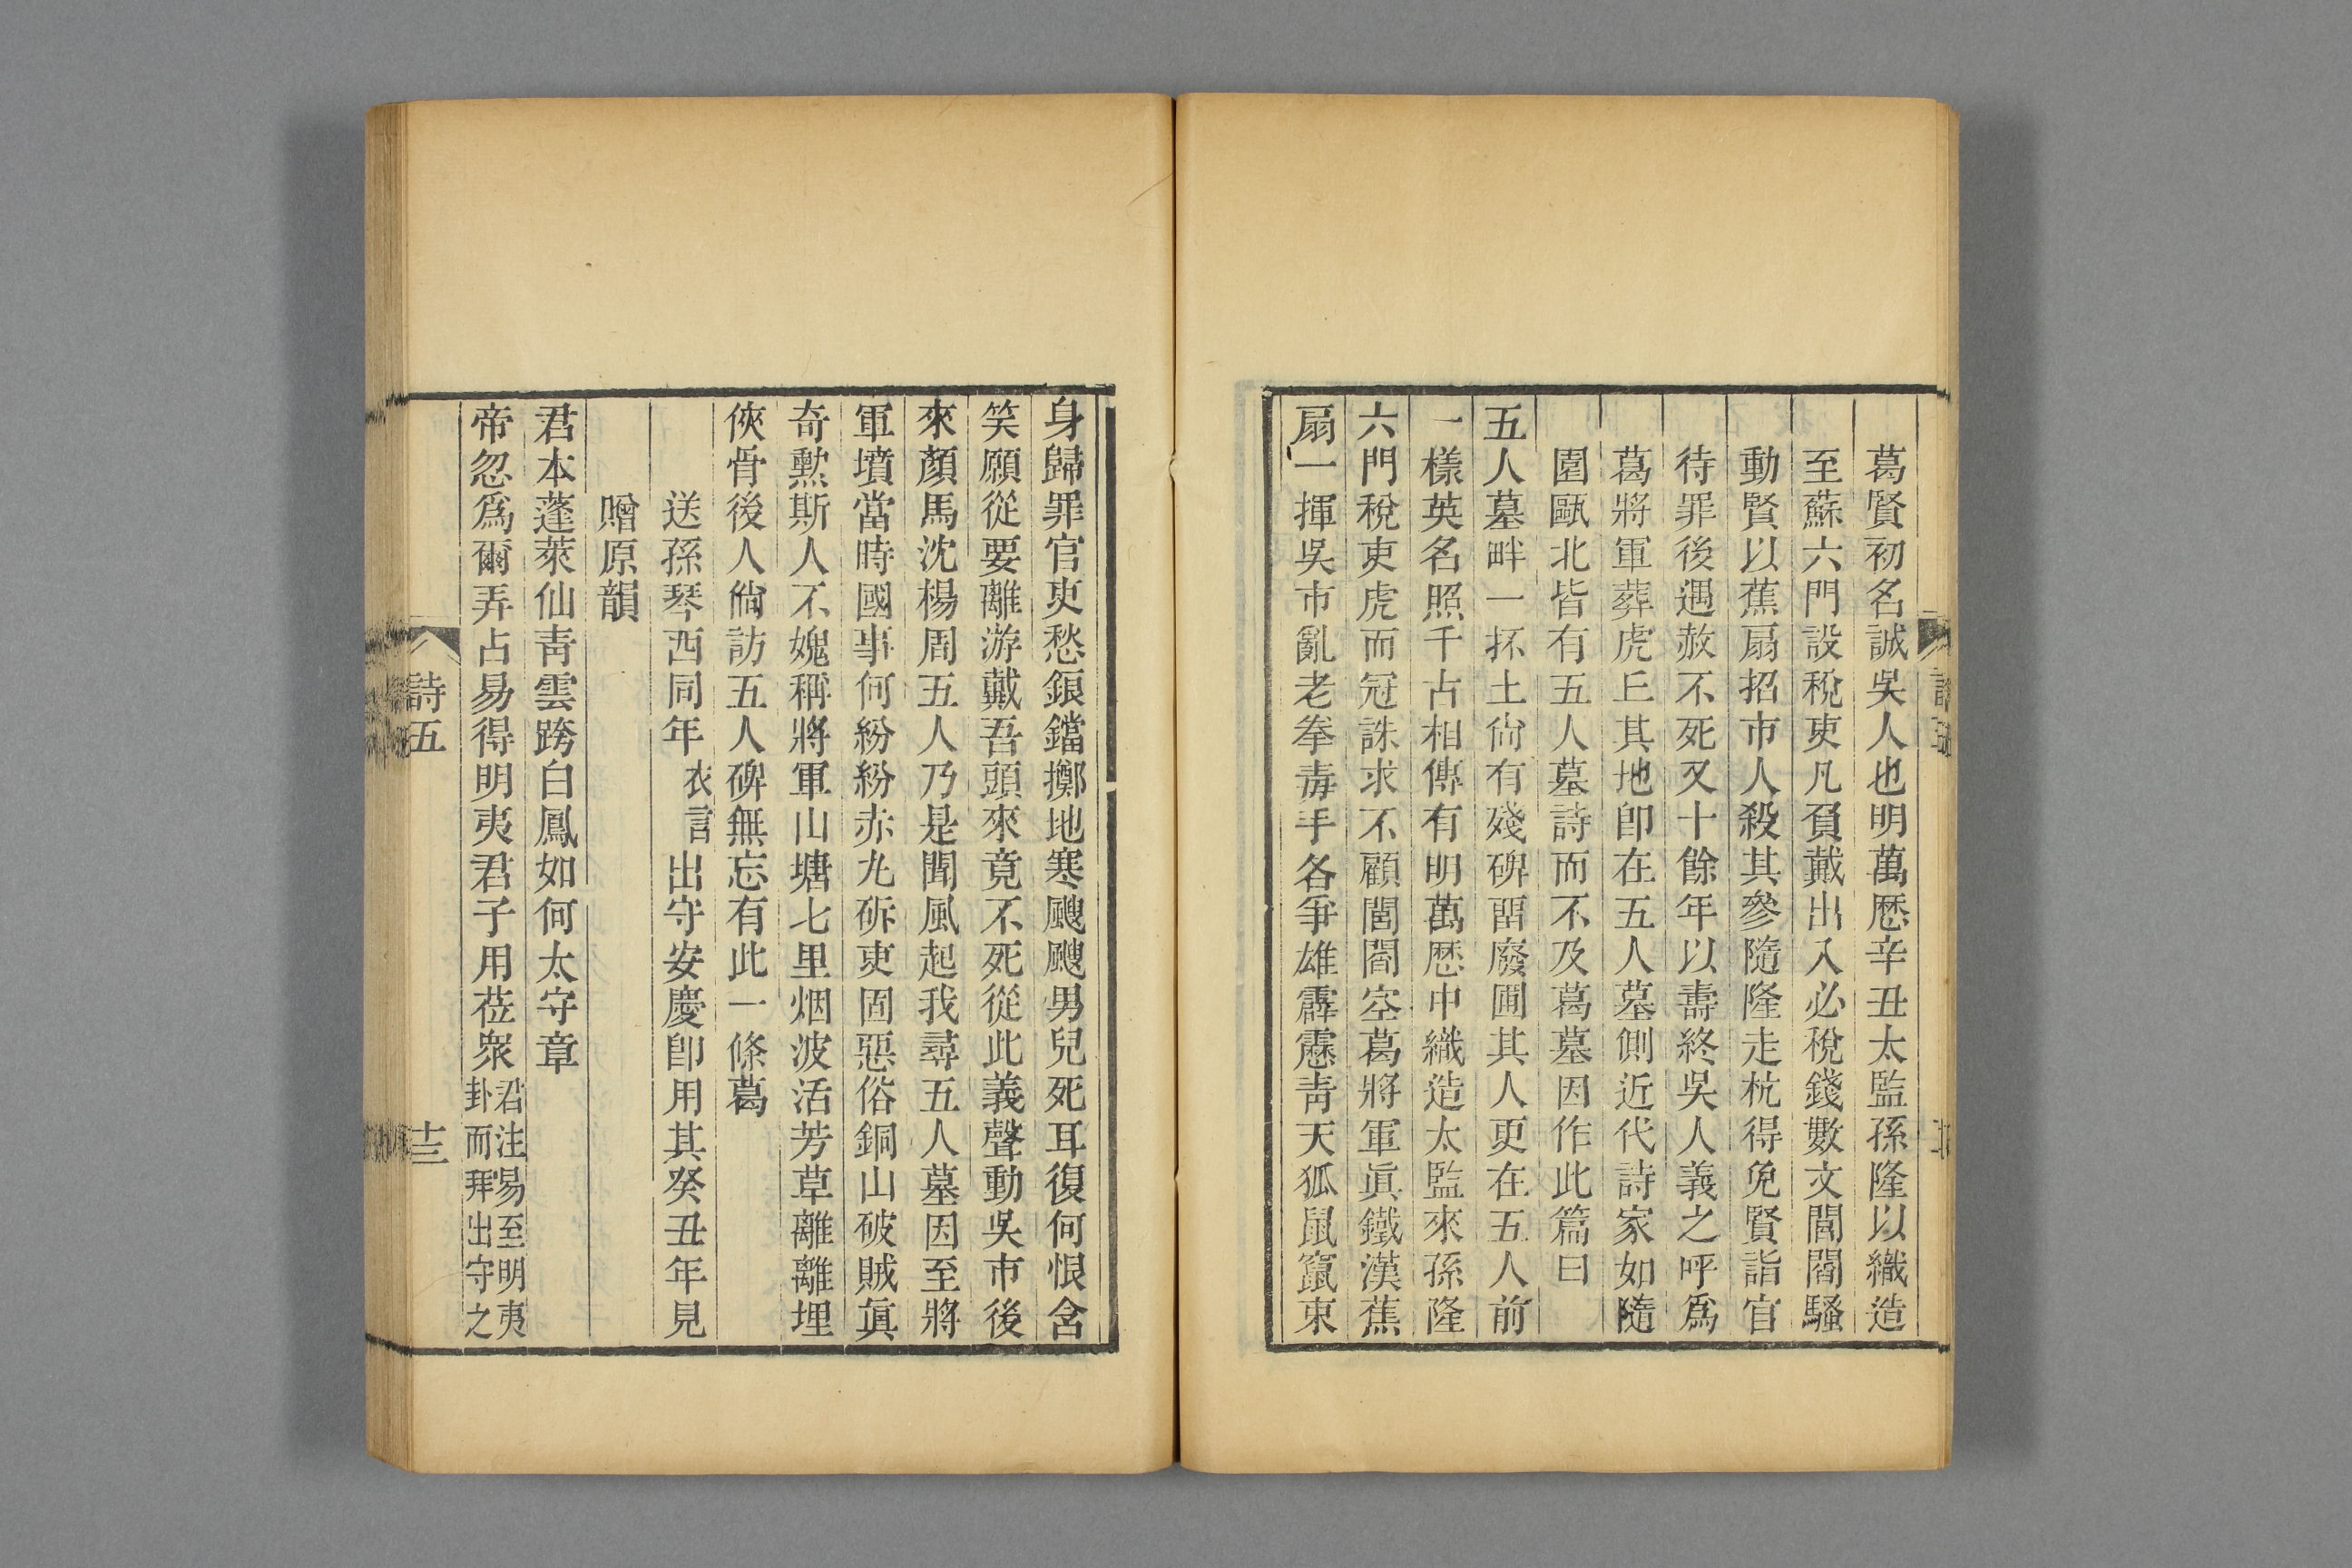 葛賢初名誠吳人也明萬歷辛丑太監孫隆以織造
至蘇六門設稅吏凡負戴出入必稅錢數文閭閻騷
動賢以蕉扇招市人殺其參隨隆走杭得免賢詣官
待罪後遇赦不死又十餘年以壽終吳人義之呼爲
葛將軍葬虎丘其地卽在五人墓側近代詩家如隨
園甌北皆有五人墓詩而不及葛墓因作此篇曰
五人墓畔一抔土尙有殘碑畱廢圃其人更在五人前
一樣英名照千古相傳有明萬歷中織造太監來孫隆
六門稅吏虎而冠誅求不顧閭閻空葛將軍眞鐵漢蕉
扇一揮吳市亂老拳毒手各爭雄霹靂靑天狐鼠竄束
身歸罪官吏愁鋃鐺擲地寒颼颼男兒死耳復何恨含
笑願從要離游戴吾頭來竟不死從此義聲動吳市後
來顏馬沈楊周五人乃是聞風起我尋五人墓因至將
軍墳當時國事何紛紛赤丸斫吏固惡俗銅山破賊眞
奇勲斯人不媿稱將軍山塘七里烟波活芳草離離埋
俠骨後人倘訪五人碑無忘有此一條葛
送孫琴西同年衣言出守安慶卽用其癸丑年見
贈原韻
君本蓬萊仙靑雲跨白鳳如何太守章
帝忽爲爾弄占易得明夷君子用莅衆君注易至明夷
卦而拜出守之
詩五
十三